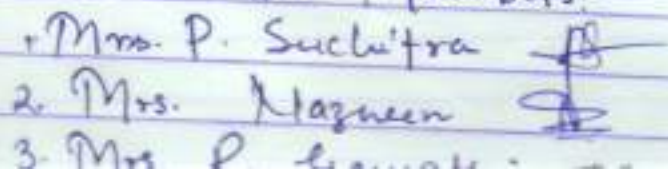 1. Mrs. P. Suchitra
2. Mrs. Nazneen
3. Mrs P.